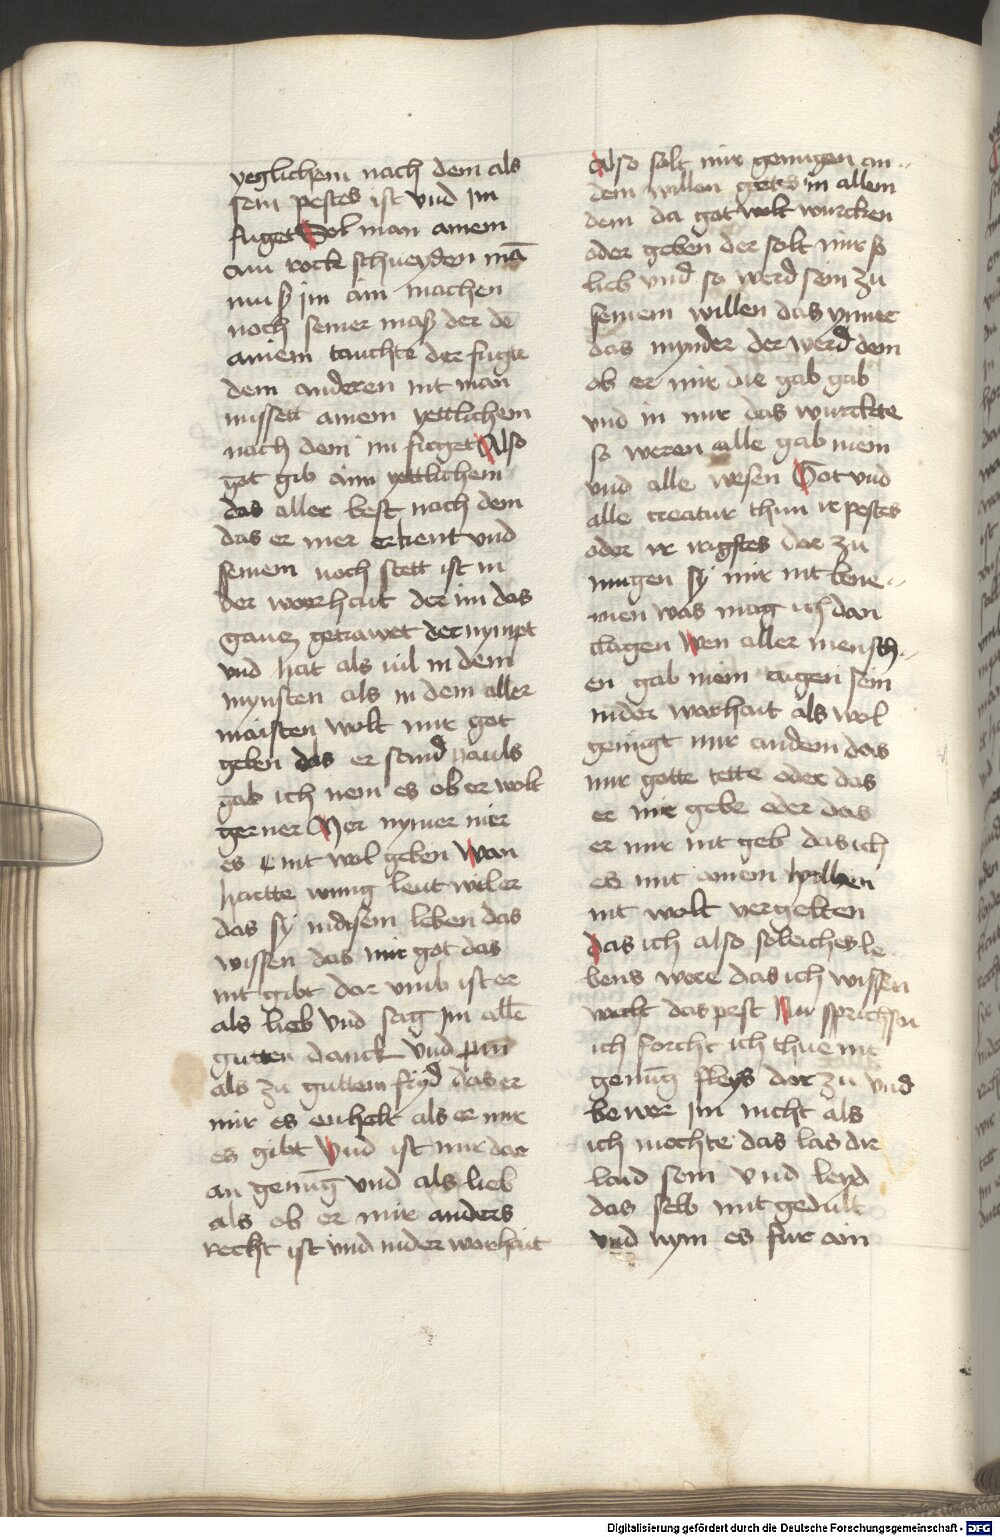 yeglichem nach dem als
sein pestes ist vnd Jm
fuget Sol man ainem
ain rock schneyden mā
muß jm ain machen
noch seiner maß der dē
ainem tauchte der fugte
dem anderen nit man
missett ainem yettlichem
nach dem im fuget Also
got gib aim yettlichem
das aller best nach dem
das er mer erkent vnd
seinem noch stett ist in
der warhait der im das
gancz getrawet der nympt
vnd hat als uil in dem
mynsten als in dem aller
maisten wolt mir got
geben das er sand pauls
gab ich nem es ob er wolt
gerner Wer nymer mer
es nit wol geben Wan
hartte wing leut wil er
das sy in disem leben das
wissen das mir got das
nit gibt dar vmb ist er
als lieb vnd sag Jm allē
gutten danck vnd pin
als zu guttem fryd das er
mir es enhelt als er mir
es gibt Vnd ist mir dar
an genūg vnd als lieb
als ob er mir anders
recht ist vnd in der warhait
Also solt mir genugen an
dem willen gottes in allem
dem da got wolt wurcken
oder geben der solt mir so
lieb vnd so werd sein zu
seinem willen das ymmer
das mynder der werd dem
ob er mir die gab gab
vnd in mir das wurckte
so weren alle gab mein
vnd alle wesen Got vnd
alle creatur thun ir pestes
oder ir irgstes dar zu
mugen sy mir nit bene
men was mag ich dan
clagen Wen aller mensch
en gab mein aigen sein
in der warhait als wol
genugt mir an dem das
mir gotte tette oder das
er mir gebe oder das
er mir nit geb das ich
es mit ainem
nit wolt vergelten
das ich also soleiches le
bens were das ich wissen
mecht das pest Nu sprichstu
ich forcht ich thue nit
genūg fleys dar zu vnd
bewar jm nicht als
ich mochte das las dir
laid sein vnd leyd
das selb mit gedult
vnd nym es fur ain
Digitalisierung gefördert durch die Deutsche Forschungsgemeinschaft - DFG